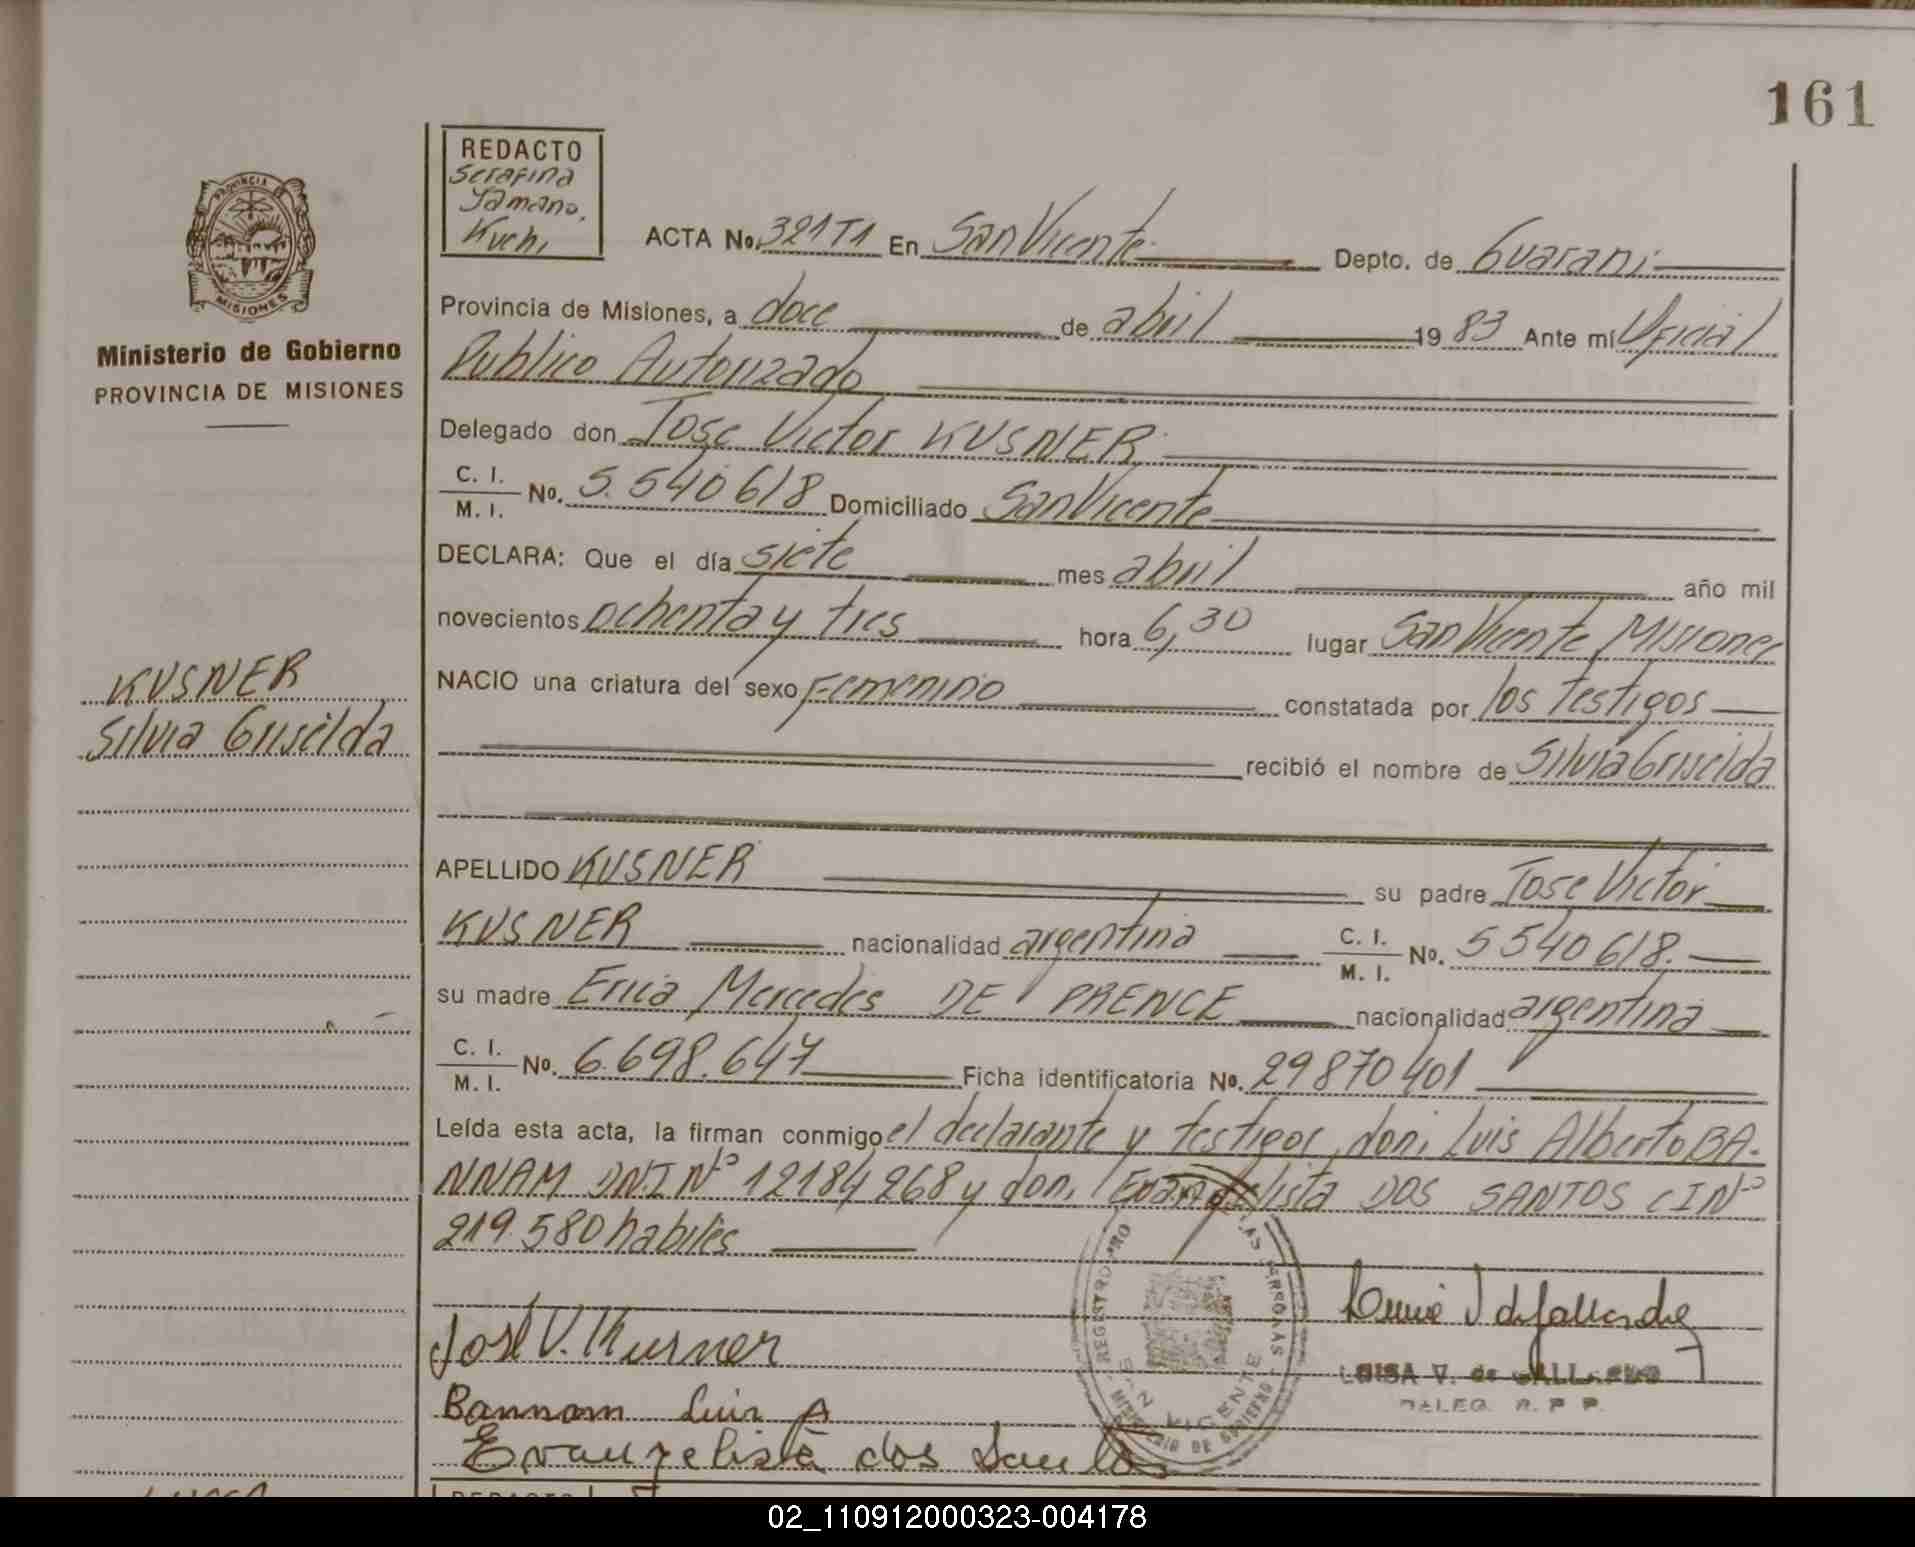 161
REDACTO
Serafina
Tamano.
Kuch,
PROVINCIA
MISIONES
Ministerio de Gobierno
PROVINCIA DE MISIONES
ACTA No. 321T1 En San Vicente Depto. de Guarani
Provincia de Misiones, a doce de abril 1983 Ante mí Oficial
Publico Autorizado
Delegado don Jose Victor KUSNER
C. I.
M. I. No. 5.540618 Domiciliado San Vicente
DECLARA: Que el día siete mes abril año mil
novecientos ochenta y tres hora 6,30 lugar San Vicente Misiones
NACIO una criatura del sexo Femenino constatada por los testigos
recibió el nombre de Silvia Griselda
KUSNER
Silvia Griselda
APELLIDO KUSNER su padre Jose Victor
KUSNER nacionalidad argentina C. I. M. I. No. 5540618.
su madre Erica Mercedes DE PRENCE nacionalidad argentina
C. I.
M. I. No. 6.698.647 Ficha identificatoria No. 29870401
Leída esta acta, la firman conmigo el declarante y testigos, don, Luis Alberto BA-
NNAM DNI Nº 12184268 y don, Evangelista DOS SANTOS CI Nº
219.580 habiles
José V. Kusner
Bannam Luis A
Evangelista dos Santos
LUISA V. de GALLARDO
DELEG. R. P. P.
REDACTO
02_110912000323-004178